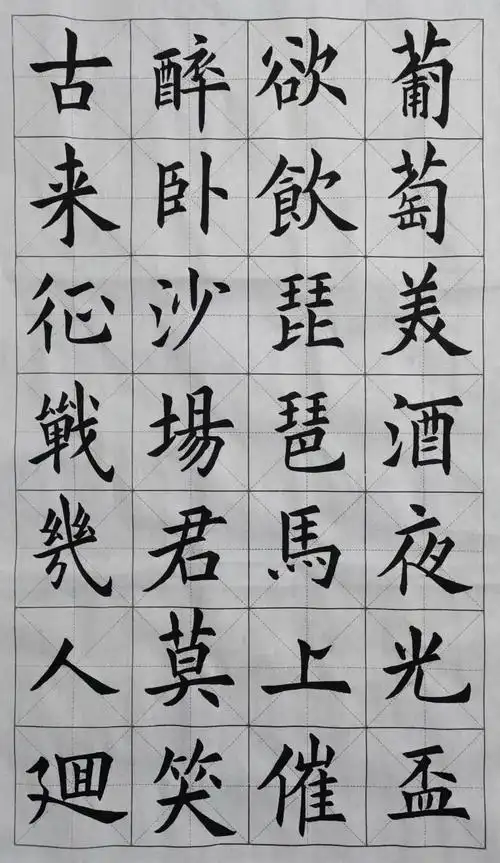 葡萄美酒夜光盃
欲飲琵琶馬上催
醉卧沙場君莫笑
古来征戰幾人迴